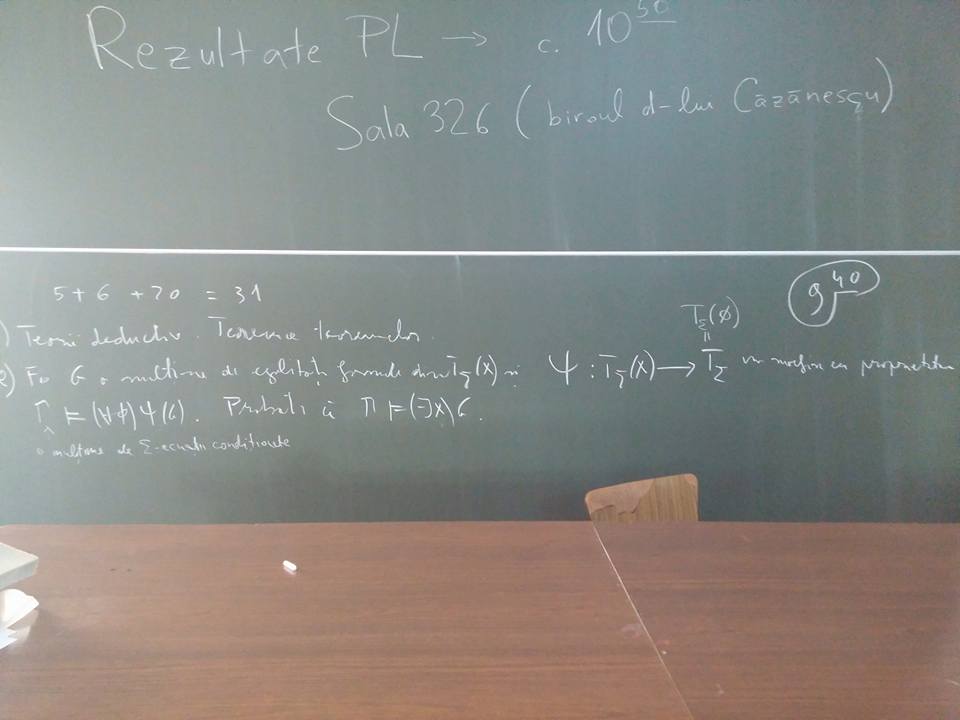 Rezultate PL → c. 10⁵⁰
Sala 326 (biroul d-lui Căzănescu)
5 + 6 + 20 = 31
9⁴⁰
T_Σ(∅)
=
) Teorii deductive. Teorema teoremelor.
2) Fie G o mulțime de egalități formale din T_Σ(X) și Ψ : T_Σ(X) → T_Σ un morfism cu proprietatea
Γ ⊨ (∀∅) Ψ(G). Probați că Γ ⊨ (∃X) G.
o mulțime de Σ-ecuații condiționate